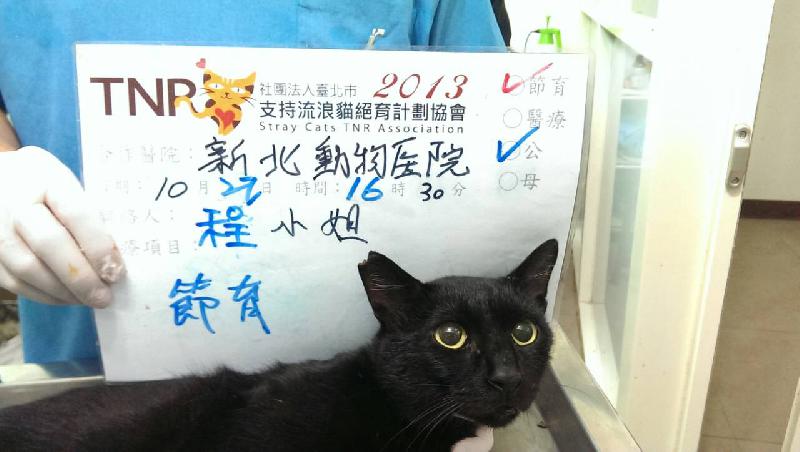 TNR 社團法人臺北市 2013
支持流浪貓絕育計劃協會
Stray Cats TNR Association
節育
醫療
公
母
合作醫院：新北動物医院
期：10月27日 時間：16時30分
聯絡人：程小姐
療項目：
節育